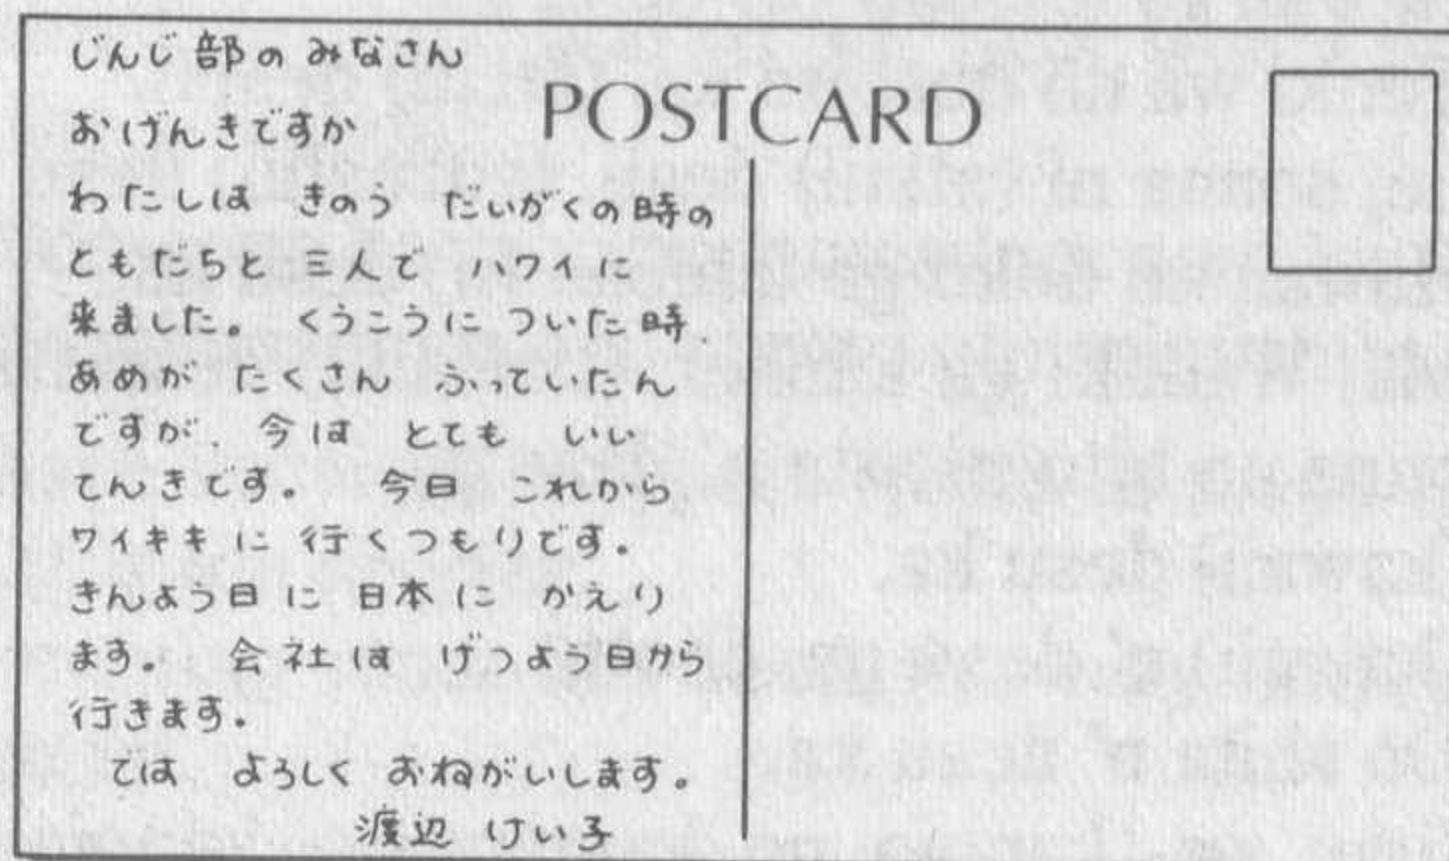 じんじ部の みなさん
POSTCARD
おげんきですか
わたしは きのう だいがくの時の
ともだちと 三人で ハワイに
来ました。 くうこうに ついた時、
あめが たくさん ふっていたん
ですが、今は とても いい
てんきです。 今日 これから
ワイキキに 行くつもりです。
きんよう日に 日本に かえり
ます。 会社は げつよう日から
行きます。
では よろしく おねがいします。
渡辺 けい子